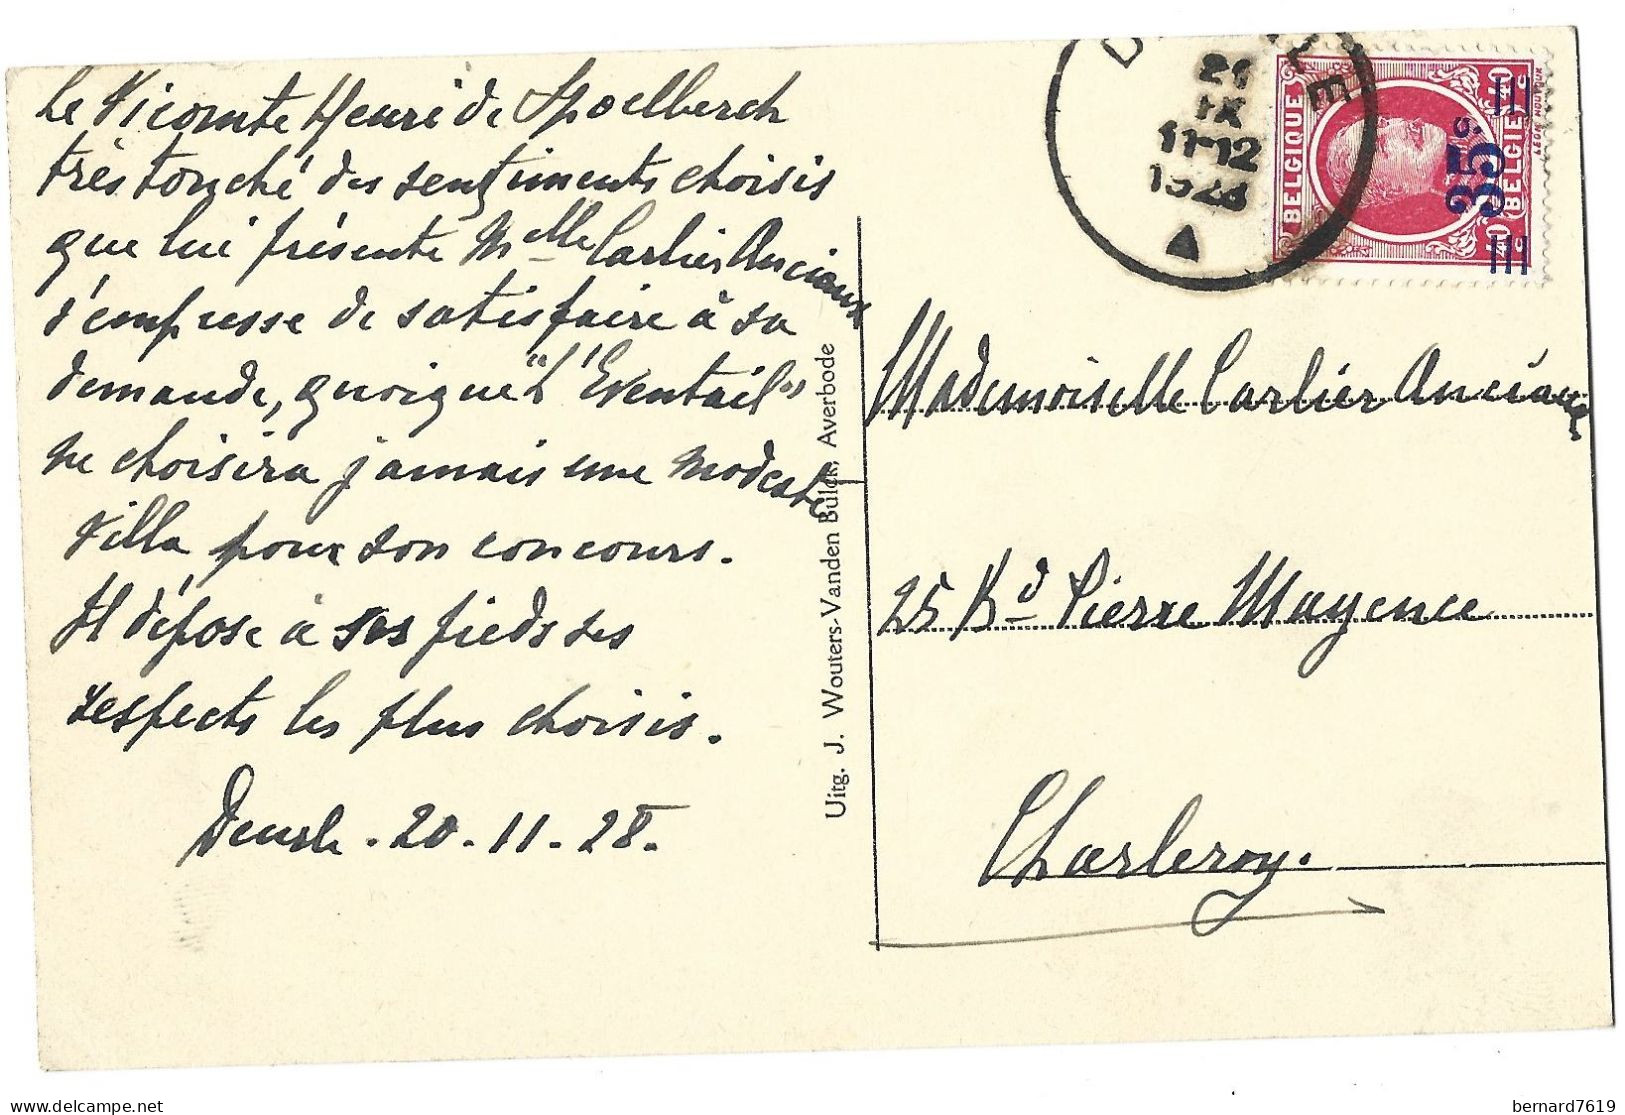 Le Vicomte Henri de Spoelberch
très touché des sentiments choisis
que lui présente Melle Carlier Anciaux
s'empresse de satisfaire à sa
demande, quoique "L'Eventail"
ne choisira jamais une modeste
villa pour son concours.
Il dépose à ses pieds ses
respects les plus choisis.
Deurle. 20-11-28.
Uitg. J. Wouters-Vanden Bulck, Averbode
1928
11-12
BELGIQUE
BELGIE
35c
Mademoiselle Carlier Anciaux
25 Bd Pierre Mayence
Charleroy.
bernard7619